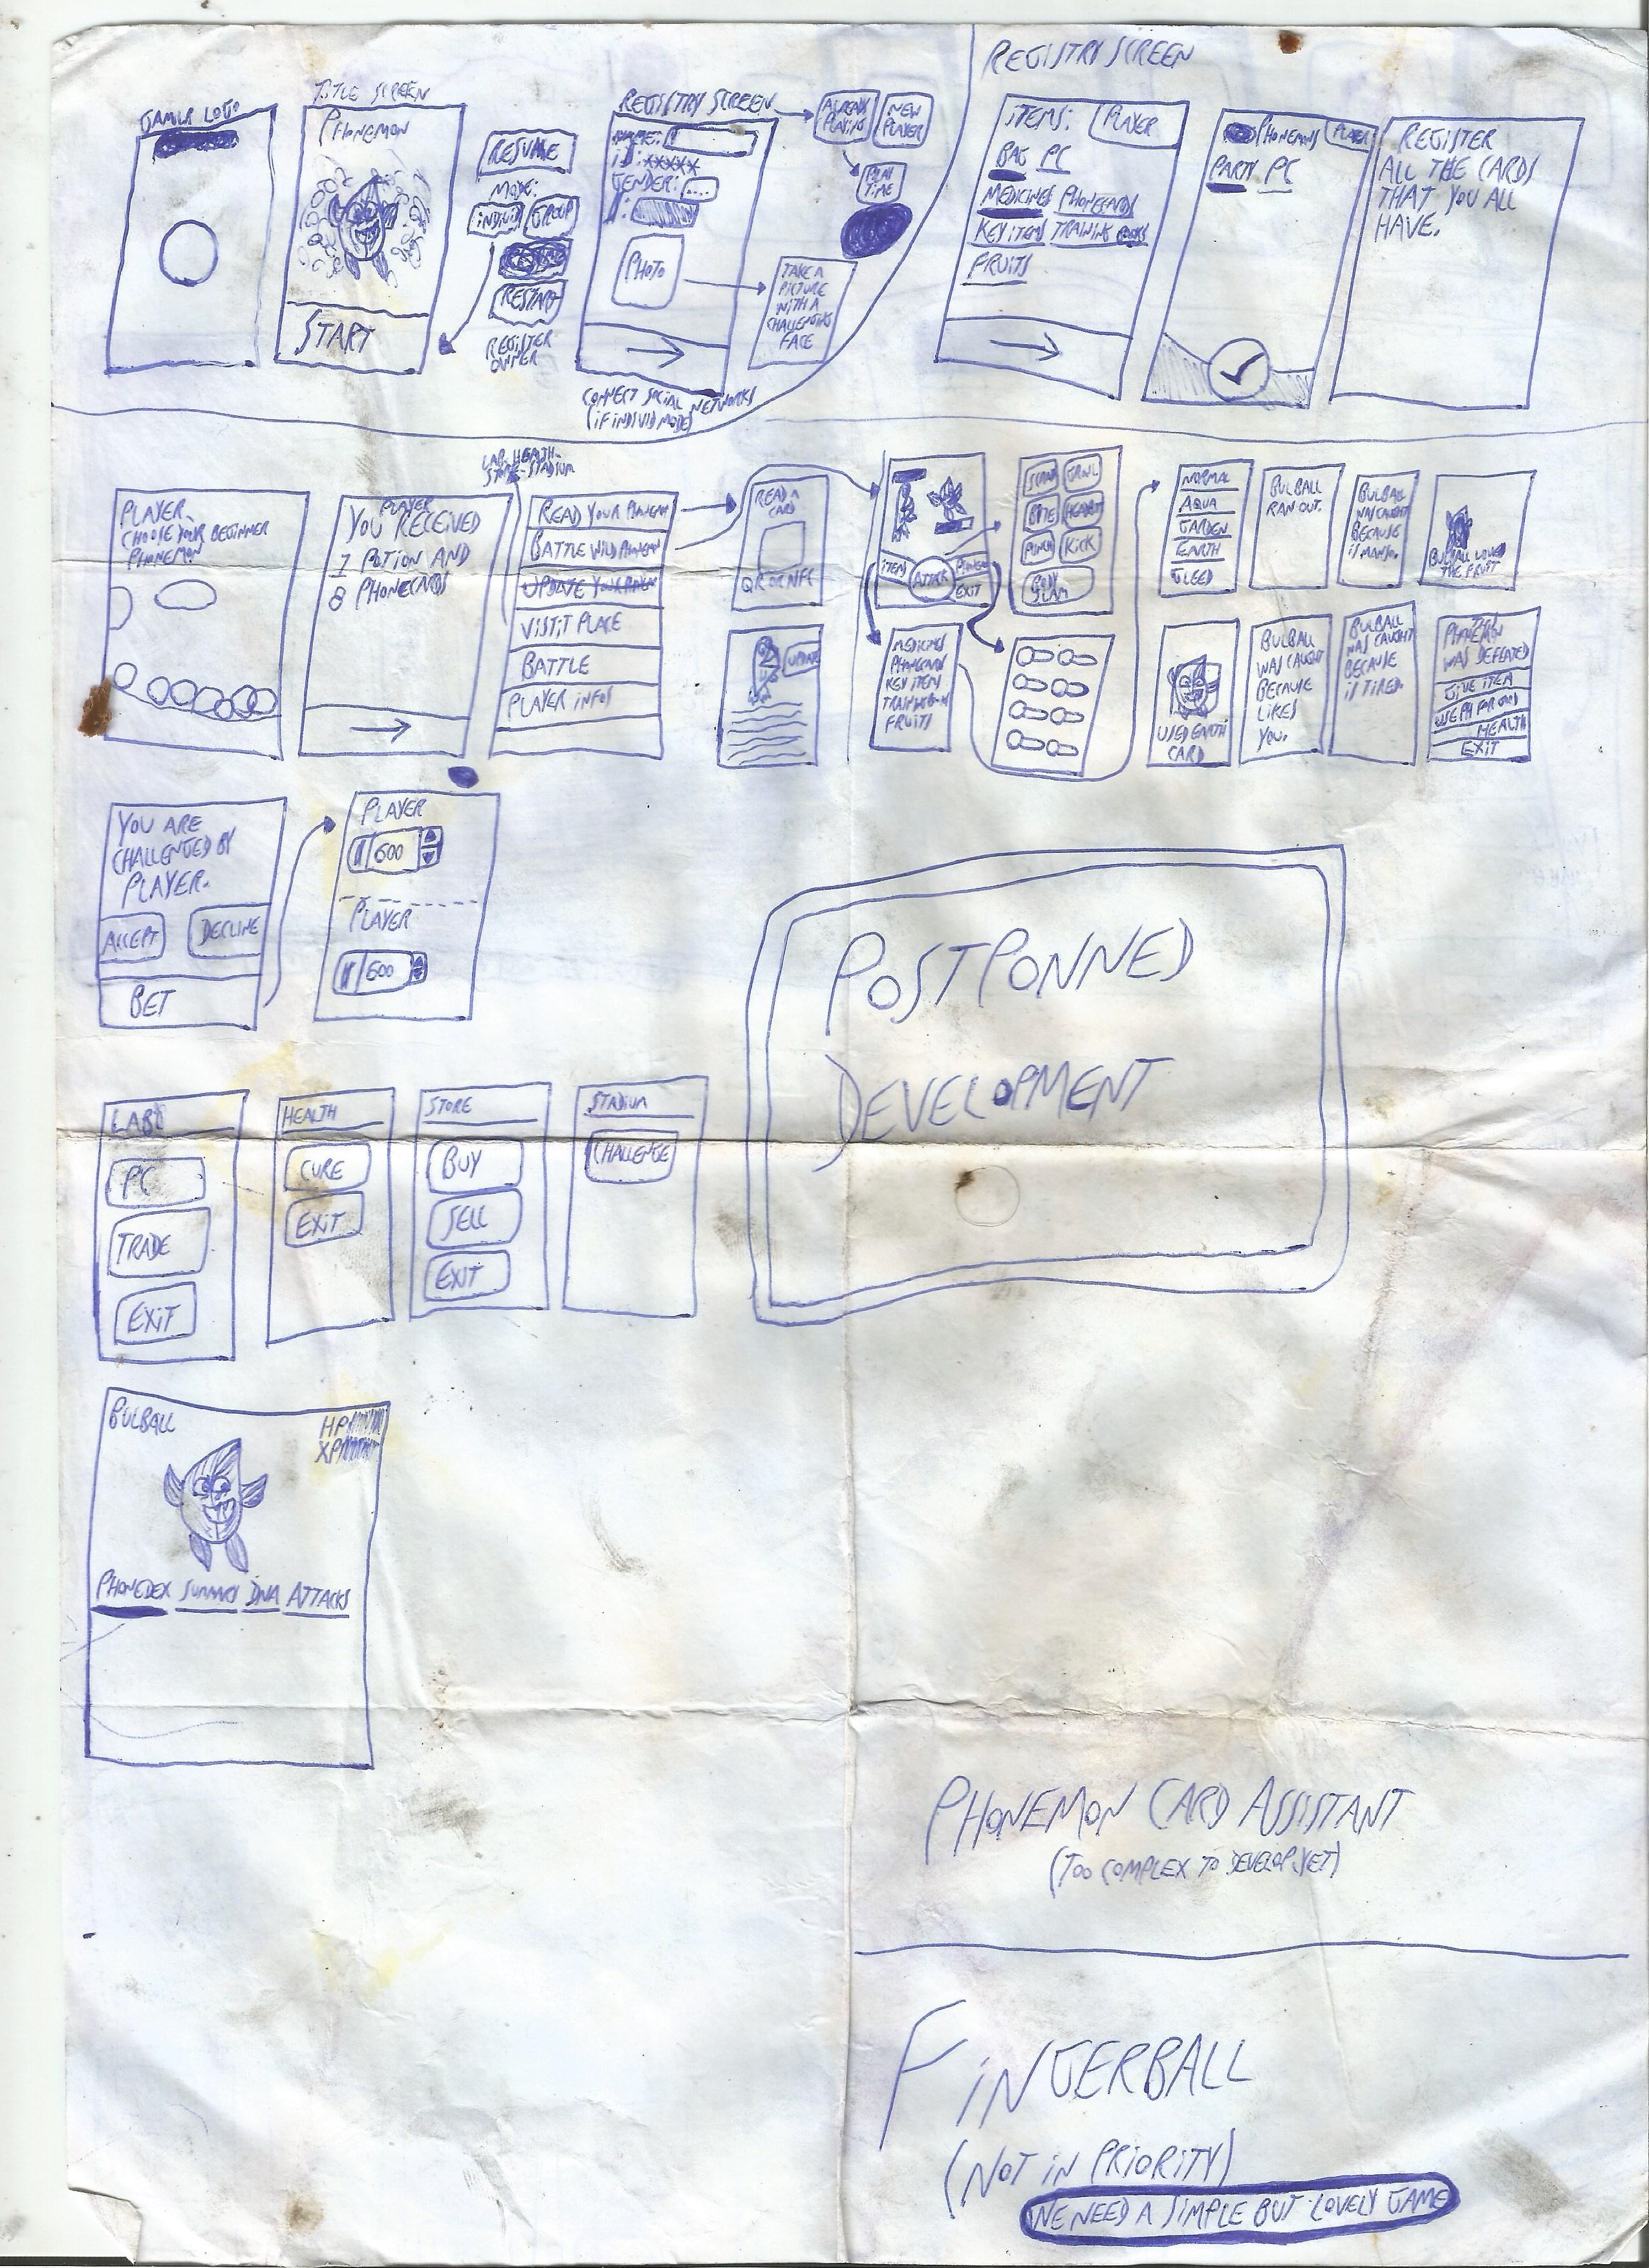 GAMLR LOGO
TITLE SCREEN
PHONEMON
START
RESUME
MODE:
INDIVID
GROUP
RESTART
REGISTER
OWNER
REGISTRY SCREEN
NAME:
ID: XXXXX
GENDER: ....
PHOTO
CONNECT SOCIAL NETWORKS
(IF INDIVID MODE)
ALREADY
PLAYING
NEW
PLAYER
PLAY
TIME
TAKE A
PICTURE
WITH A
CHALLENGING
FACE
REGISTRY SCREEN
ITEMS:
PLAYER
BAG PC
MEDICINES PHONECARDS
KEY ITEMS TRAINING
FRUITS
PHONEMONS
PLAYER
PARTY PC
REGISTER
ALL THE CARDS
THAT YOU ALL
HAVE.
PLAYER,
CHOOSE YOUR BEGINNER
PHONEMON.
PLAYER
YOU RECEIVED
1 POTION AND
8 PHONECARDS
LAB-HEALTH-
STORE-STADIUM
READ YOUR PHONEMON
BATTLE WILD PHONEMON
UPDATE YOUR PHONEMON
VISTIT PLACE
BATTLE
PLAYER INFOS
READ A
CARD
QR OR NFC
UPDATE
ITEM
ATTACK
EXIT
MEDICINES
PHONECARDS
KEY ITEM
FRUITS
GROWL
BITE
HEADBUTT
PUNCH
KICK
BODY
SLAM
NORMAL
AQUA
GARDEN
EARTH
GLEED
BULBALL
RAN OUT.
BULBALL
WAS CAUGHT
BECAUSE
BULBALL LOVED
THE FRUIT
USED EARTH
CARD
BULBALL
WAS CAUGHT
BECAUSE
LIKES
YOU.
BULBALL
WAS CAUGHT
BECAUSE
IS TIRED.
THIS
PHONEMON
WAS DEFEATED
GIVE ITEM
HEALTH
EXIT
YOU ARE
CHALLENGED BY
PLAYER.
ACCEPT
DECLINE
BET
PLAYER
600
PLAYER
600
POSTPONNED
DEVELOPMENT
LAB
PC
TRADE
EXIT
HEALTH
CURE
EXIT
STORE
BUY
SELL
EXIT
STADIUM
CHALLENGE
BULBALL
HP
XP
PHONEDEX SUMMARY DNA ATTACKS
PHONEMON CARD ASSISTANT
(TOO COMPLEX TO DEVELOP YET)
FINGERBALL
(NOT IN PRIORITY)
WE NEED A SIMPLE BUT LOVELY GAME